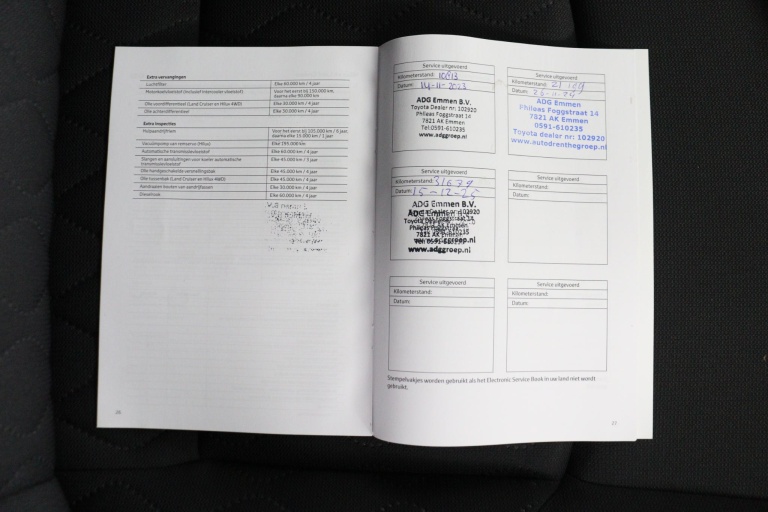 Extra vervangingen
Luchtfilter Elke 60.000 km / 4 jaar
Motorkoelvloeistof (inclusief intercooler-vloeistof) Voor het eerst bij 150.000 km, daarna elke 90.000 km
Olie voordifferentieel (Land Cruiser en Hilux 4WD) Elke 30.000 km / 4 jaar
Olie achterdifferentieel Elke 30.000 km / 4 jaar
Extra inspecties
Hulpaandrijfriem Voor het eerst bij 105.000 km / 6 jaar daarna elke 15.000 km / 1 jaar
Vacuümpomp van remservo (Hilux) Elke 195.000 km
Automatische transmissievloeistof Elke 60.000 km / 4 jaar
Slangen en aansluitingen voor koeler automatische transmissievloeistof Elke 45.000 km / 3 jaar
Olie handgeschakelde versnellingsbak Elke 45.000 km / 4 jaar
Olie tussenbak (Land Cruiser en Hilux 4WD) Elke 45.000 km / 4 jaar
Aandraaien bouten van aandrijfassen Elke 30.000 km / 4 jaar
Elke 60.000 km / 4 jaar
26
Service uitgevoerd
Kilometerstand:
Datum: 14-11-2023
ADG Emmen B.V.
Toyota Dealer nr: 102920
Philaas Foggstraat 14
7821 AK Emmen
Tel: 0591-610235
www.adggroep.nl
Service uitgevoerd
Kilometerstand:
Datum:
ADG Emmen
Philaas Foggstraat 14
7821 AK Emmen
0591-610235
Toyota dealer nr: 102920
www.autodrenthegroep.nl
Service uitgevoerd
Kilometerstand: 31679
Datum: 15-12-25
ADG Emmen B.V.
www.adggroep.nl
Service uitgevoerd
Kilometerstand:
Datum:
Service uitgevoerd
Kilometerstand:
Datum:
Service uitgevoerd
Kilometerstand:
Datum:
Stempelvakjes worden gebruikt als het Electronic Service Book in uw land niet wordt
gebruikt.
27